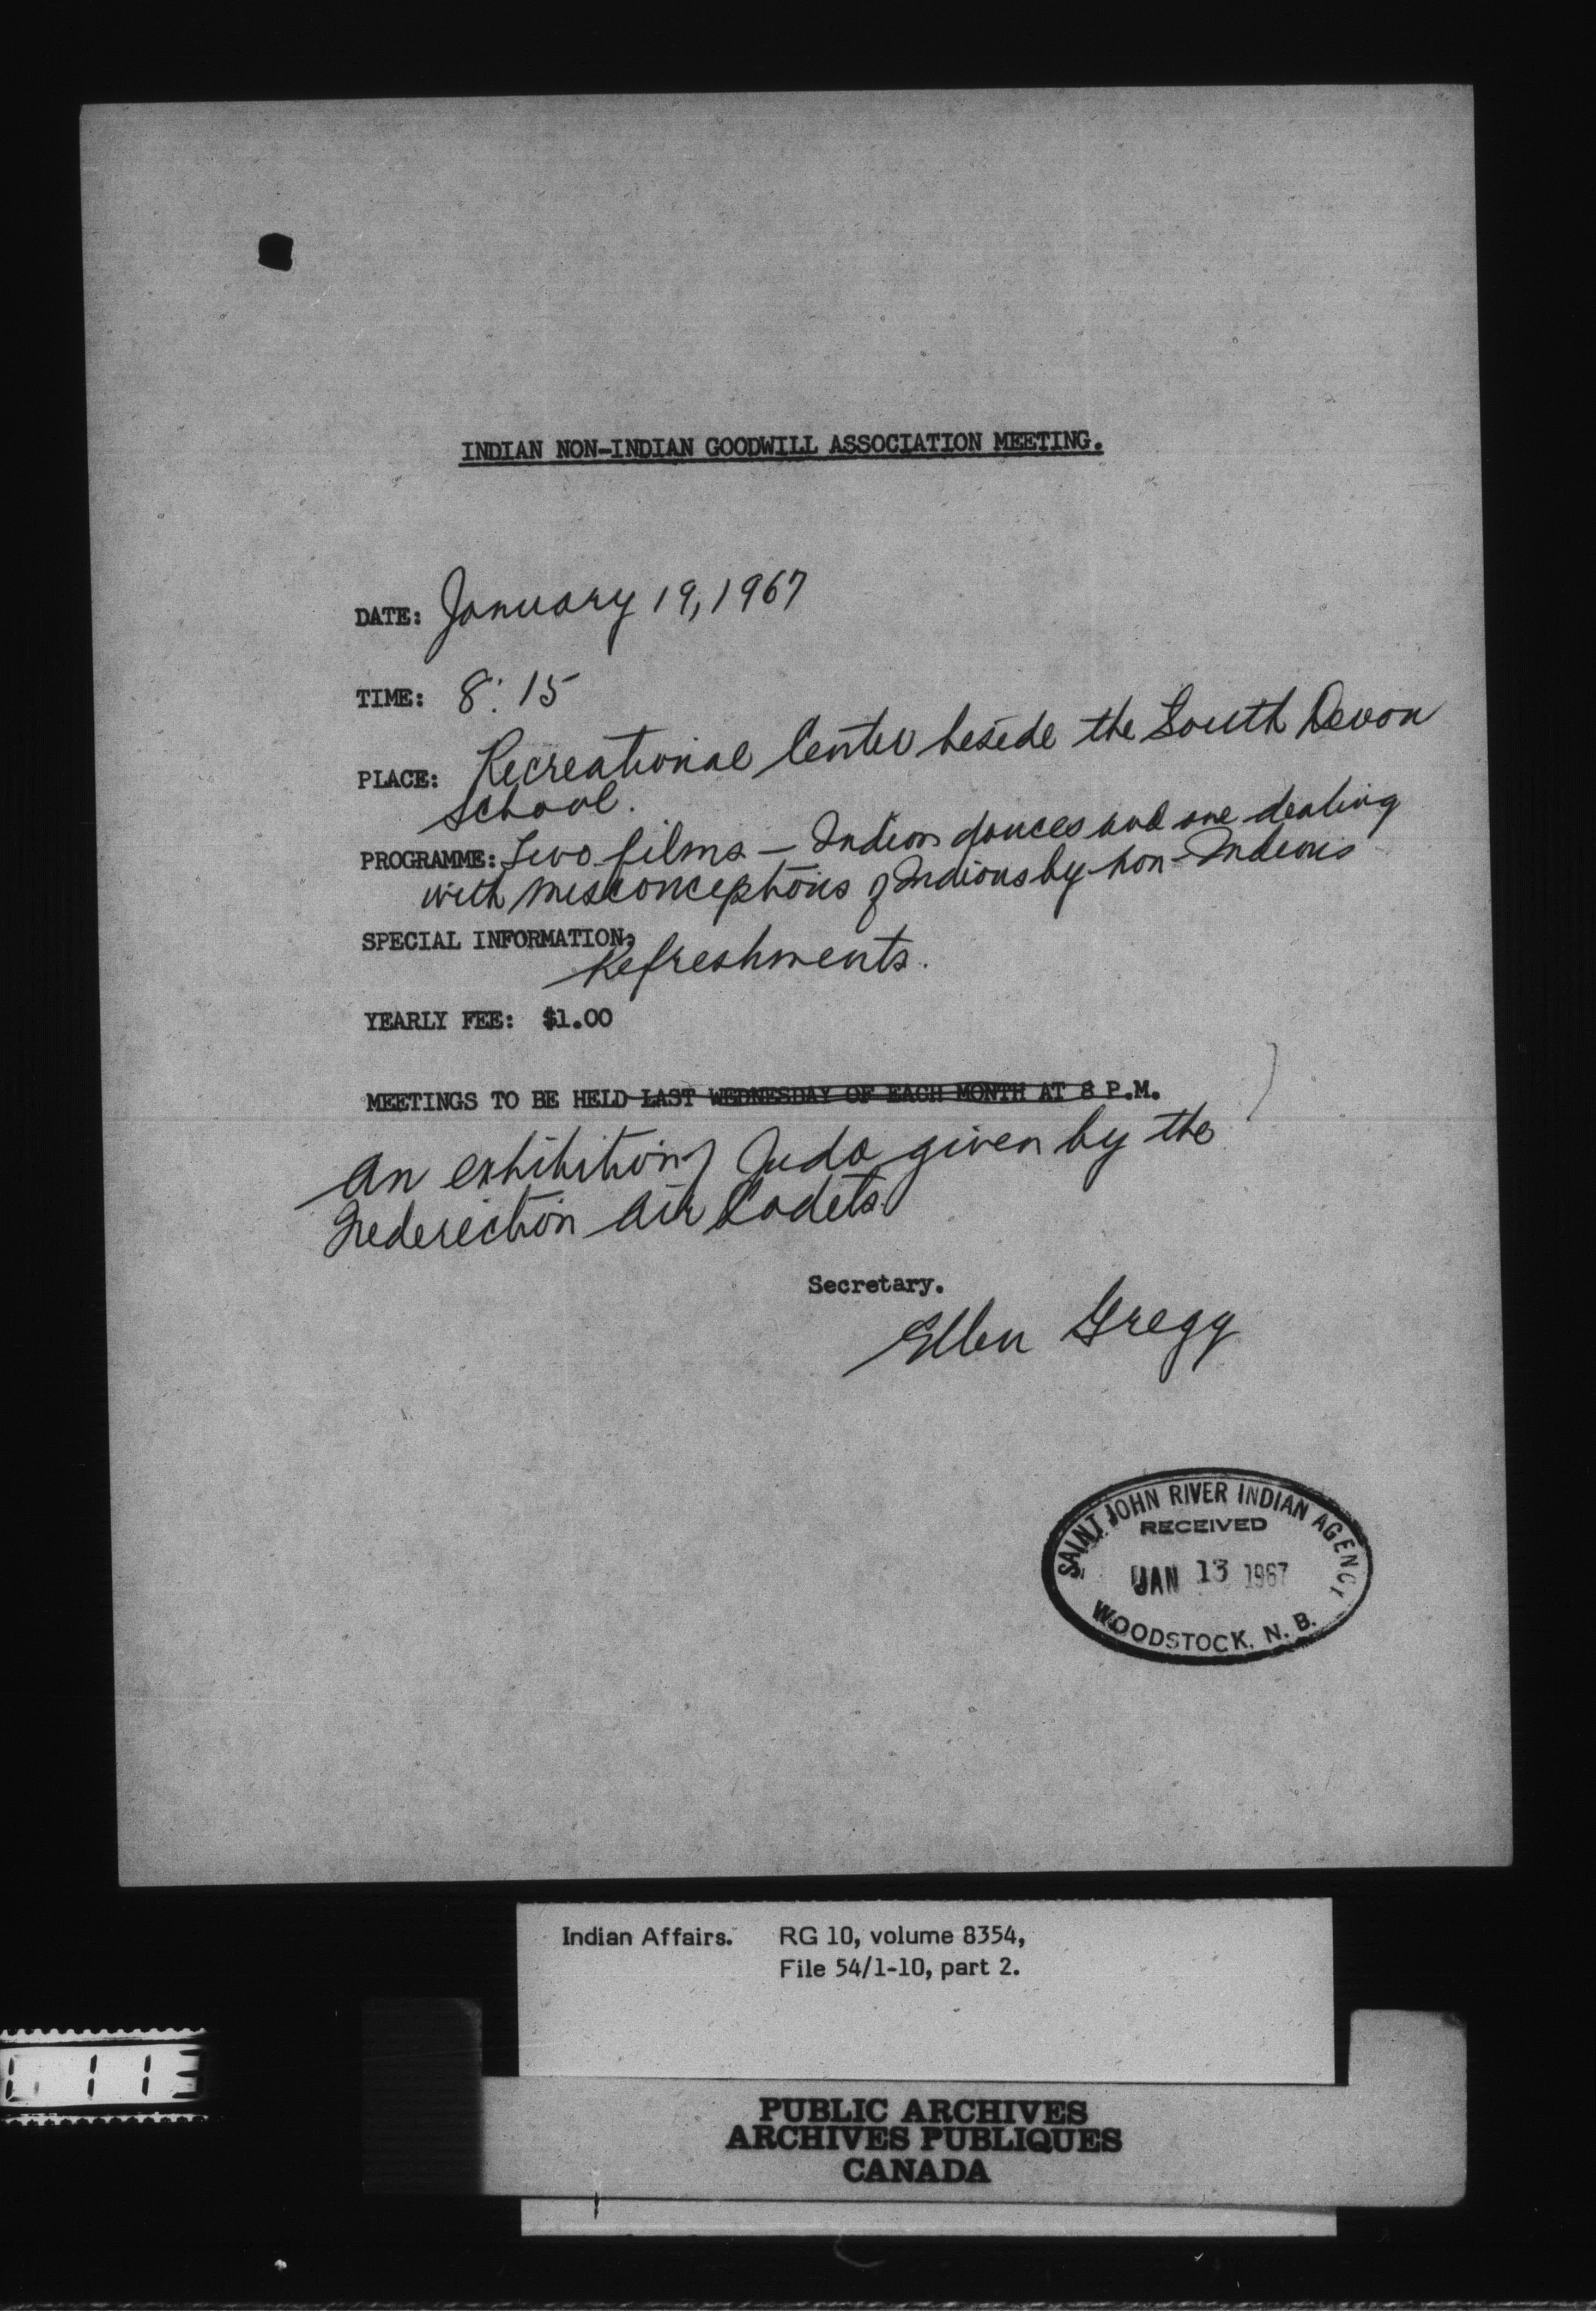 INDIAN NON-INDIAN GOODWILL ASSOCIATION MEETING.
DATE: January 19, 1967
TIME: 8:15
PLACE: Recreational Center beside the South Devon
school.
PROGRAMME: Two films — Indian dances and one dealing
with misconceptions of Indians by non-Indians
SPECIAL INFORMATION,
Refreshments.
YEARLY FEE: $1.00
MEETINGS TO BE HELD LAST WEDNESDAY OF EACH MONTH AT 8 P.M.
An exhibition of Judo given by the
Frederiction Air Cadets.
Secretary.
Ellen Gregg
SAINT JOHN RIVER INDIAN AGENCY
RECEIVED
JAN 13 1967
WOODSTOCK, N. B.
Indian Affairs. RG 10, volume 8354,
File 54/1-10, part 2.
PUBLIC ARCHIVES
ARCHIVES PUBLIQUES
CANADA